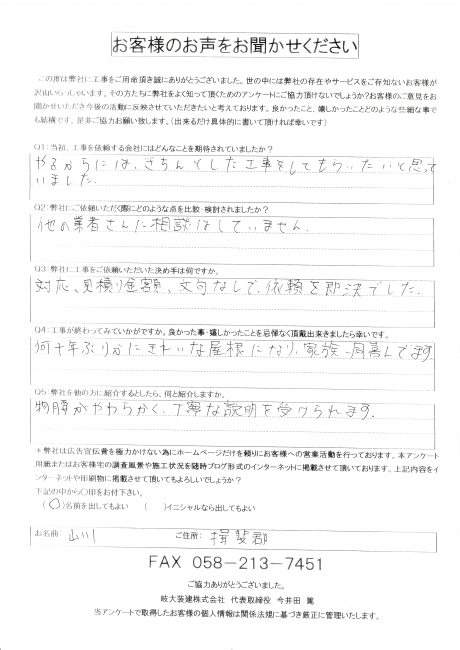 お客様のお声をお聞かせください
この度は弊社に工事をご用命頂き誠にありがとうございました。世の中には弊社の存在やサービスをご存知ないお客様が
沢山いらっしゃいます。その方たちに弊社をよく知って頂くためのアンケートにご協力頂けないでしょうか？お客様のご意見をお
聞かせいただき今後の活動に反映させていただきたいと考えております。良かったこと、嬉しかったことどのような些細な事で
も結構です。是非ご協力お願い致します。（出来るだけ具体的に書いて頂ければ幸いです）
Q1：当初、工事を依頼する会社にはどんなことを期待されていましたか？
やるからには、きちんとした工事をしてもらいたいと思って
いました。
Q2：弊社にご依頼いただく際にどのような点を比較・検討されましたか？
他の業者さんに相談はしていません。
Q3：弊社に工事をご依頼いただいた決め手は何ですか。
対応、見積り金額、文句なしで、依頼を即決でした。
Q4：工事が終わってみていかがですか。良かった事・嬉しかったことを忌憚なく頂戴出来ましたら幸いです。
何十年ぶりかにきれいな屋根になり、家族一同喜んでます。
Q5：弊社を他の方に紹介するとしたら、何と紹介しますか。
物腰がやわらかく、丁寧な説明を受けられます。
＊弊社は広告宣伝費を極力かけない為にホームページだけを頼りにお客様への営業活動を行っております。本アンケート
用紙またはお客様宅の調査風景や施工状況を随時ブログ形式のインターネットに掲載させて頂いております。上記内容をイ
ンターネットや印刷物に掲載させて頂いてもよろしいでしょうか？
下記の中から○印をお付下さい。
（○）名前を出してもよい （ ）イニシャルなら出してもよい
お名前： 山川 ご住所： 揖斐郡
FAX 058-213-7451
ご協力ありがとうございました。
岐大装建株式会社 代表取締役 今井田 篤
当アンケートで取得したお客様の個人情報は関係法規に基づき厳正に管理いたします。